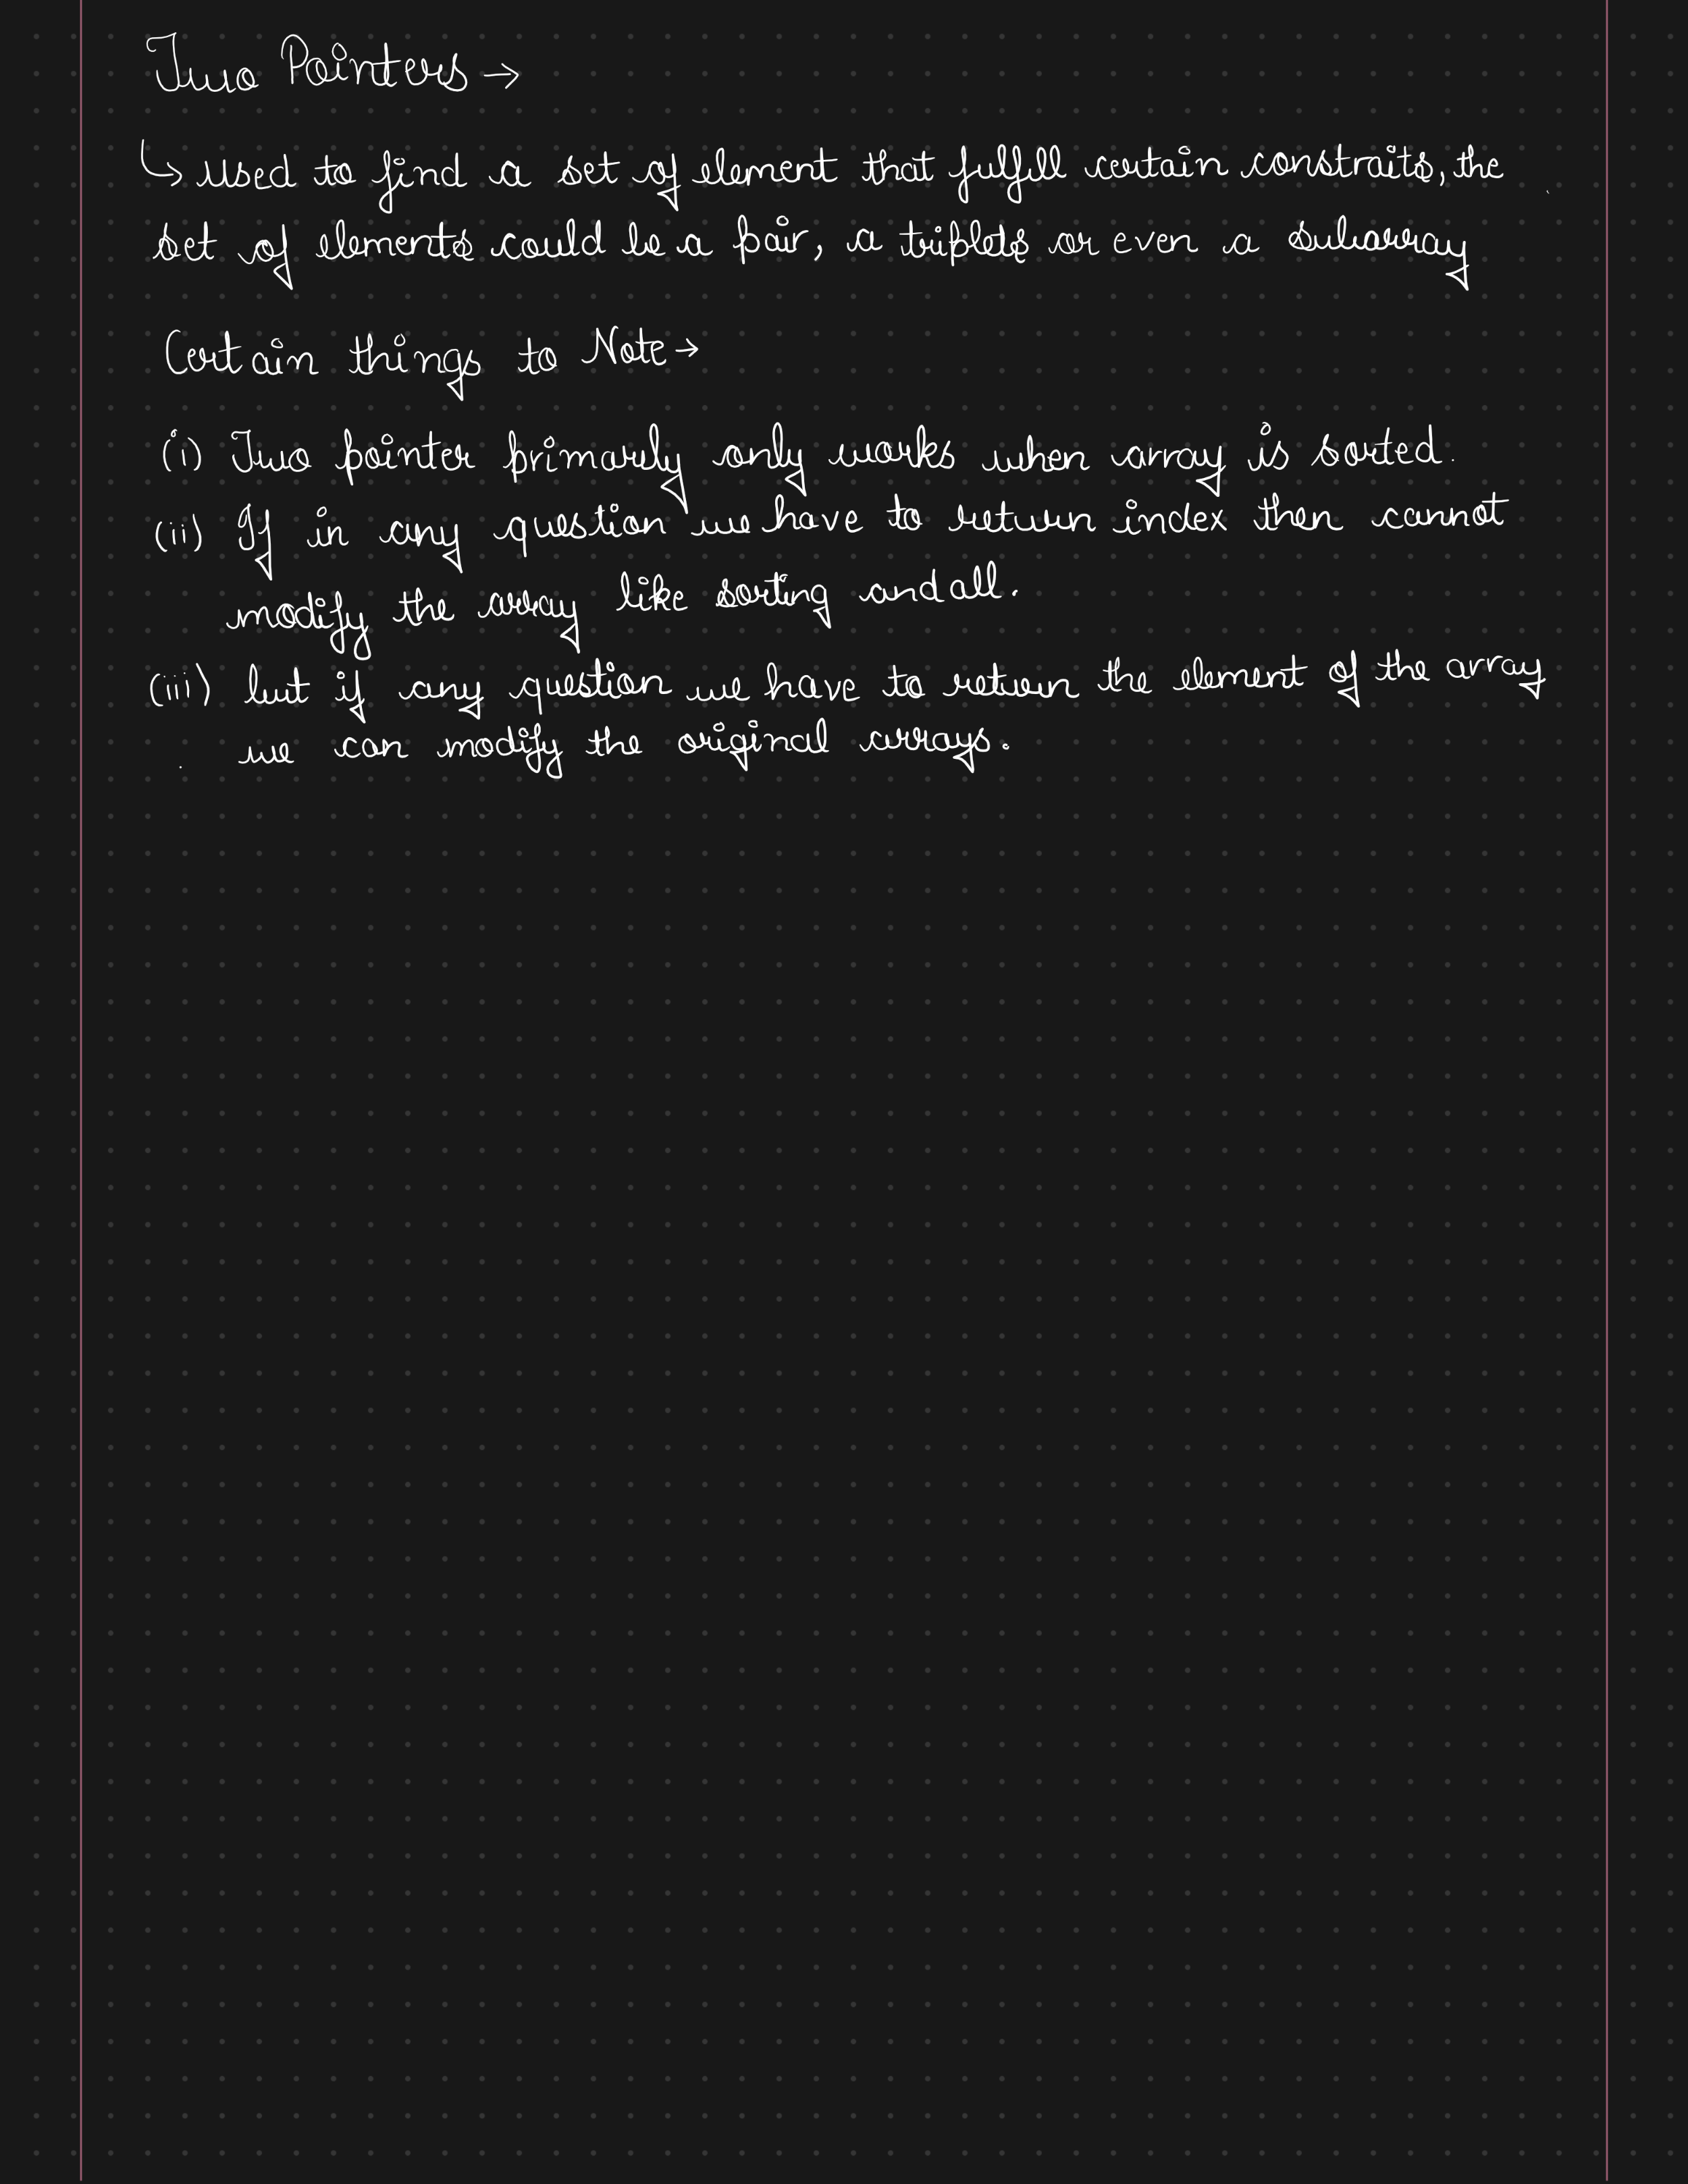 Two Pointers →
↳ used to find a set of element that fulfill certain constraits, the
set of elements could be a pair, a triplets or even a subarray
Certain things to Note →
(i) Two pointer primarily only works when array is sorted.
(ii) If in any question we have to return index then cannot
modify the array like sorting and all.
(iii) but if any question we have to return the element of the array
we can modify the original arrays.